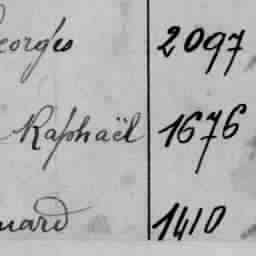 eorges 2097
Raphaël 1676
nard 1410